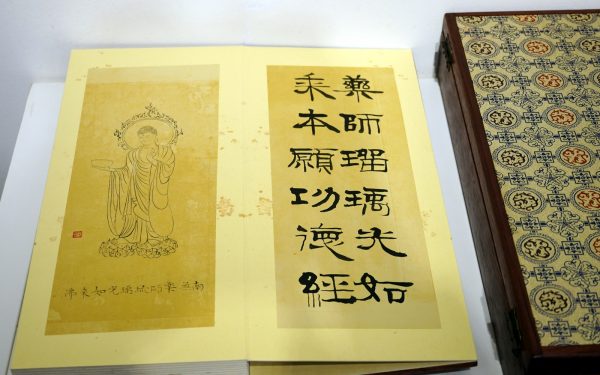 藥師瑠璃光如
來本願功德經
南無藥師琉璃光如來佛